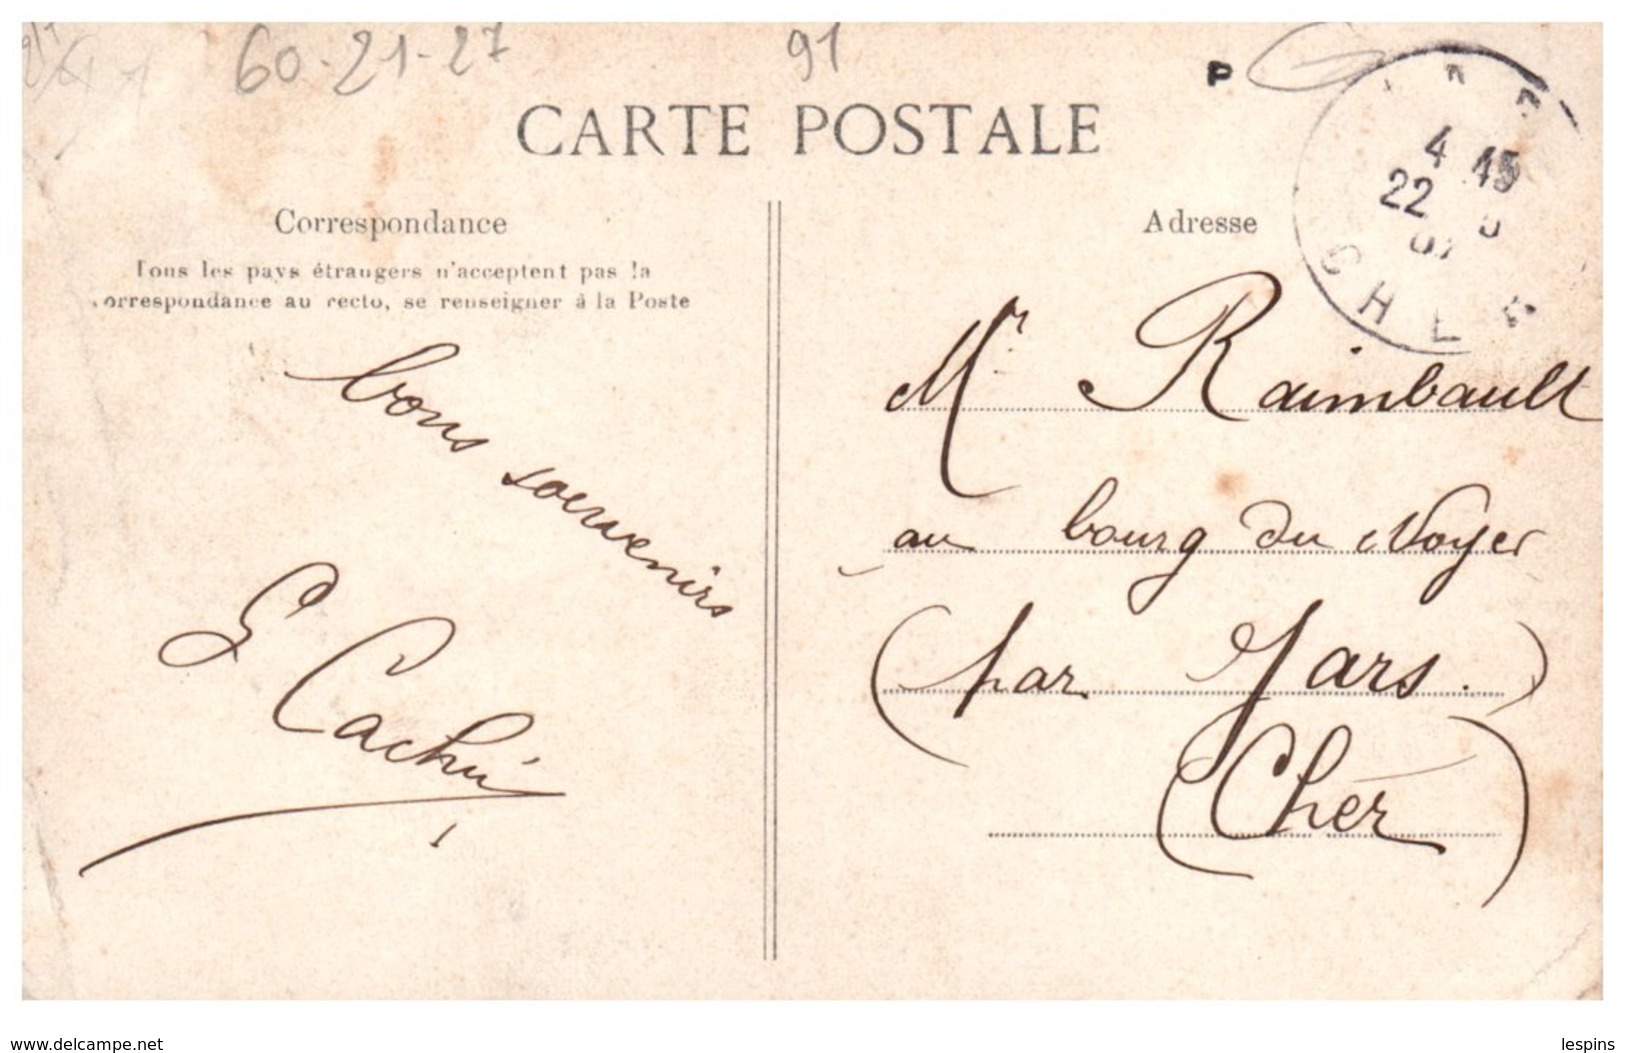 60-21-27
91
P
CARTE POSTALE
Correspondance
Tous les pays étrangers n'acceptent pas la
correspondance au recto, se renseigner à la Poste
bons souvenirs
E Cachin
Adresse
4 45
22
CHER
Mr Raimbault
au bourg du Noyer
(par Jars.)
(Cher)
www.delcampe.net
lespins